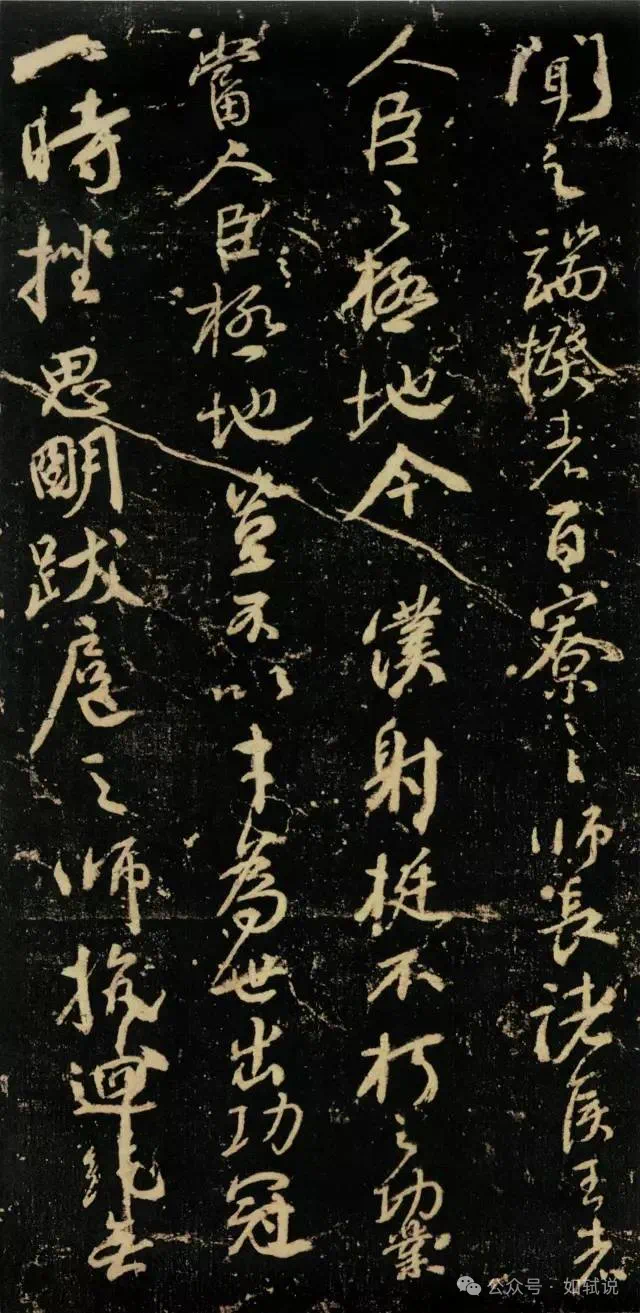 聞之端揆者百寮之師長諸侯王者
人臣之極地今僕射挺不朽之功業
當人臣之極地豈不以才為世出功冠
一時挫思明跋扈之師抗迴紇無
公众号·如轼说